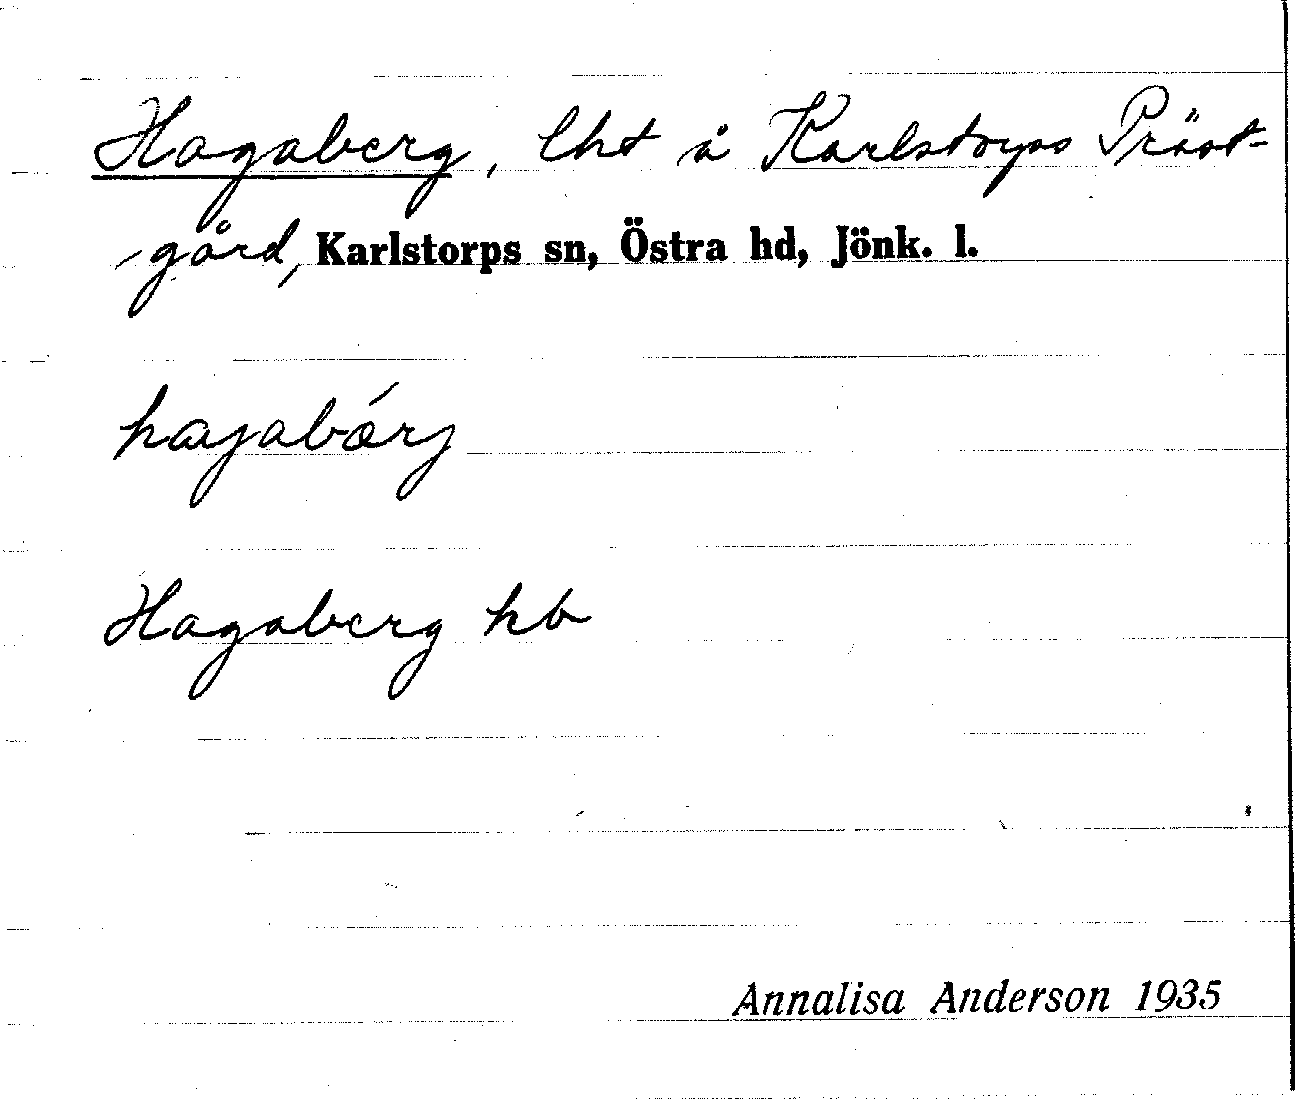 Hagaberg, lht å Karlstorps Präst-
gård, Karlstorps sn, Östra hd, Jönk. l.
hagabǽrj
Hagaberg hb
Annalisa Anderson 1935